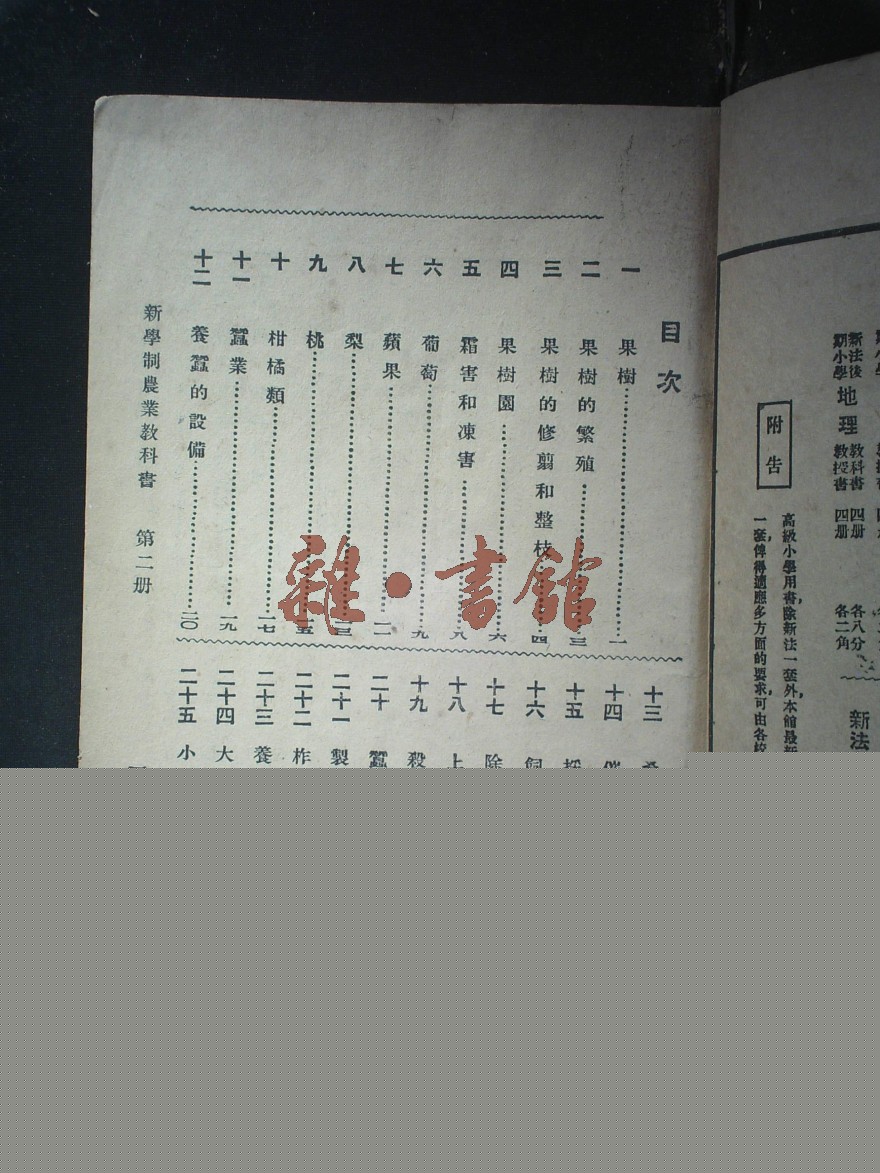 目次
一 果樹 一
二 果樹的繁殖 三
三 果樹的修剪和整枝 四
四 果樹園 六
五 霜害和凍害 八
六 葡萄 九
七 蘋果 一一
八 梨 一三
九 桃 一五
十 柑橘類 一七
十一 蠶業 一九
十二 養蠶的設備 二〇
十三
十四
十五
十六 飼
十七 除
十八 上
十九 殺
二十 蠶
二十一 製
二十二 柞
二十三 養
二十四 大
二十五 小
新學制農業教科書 第二册
雜·書館
新法後
期小學
地理
教科書 四册 各八分
教授書 四册 各二角
新法
附告
高級小學用書,除新法一套外,本館最新
一套,俾得適應多方面的要求,可由各校